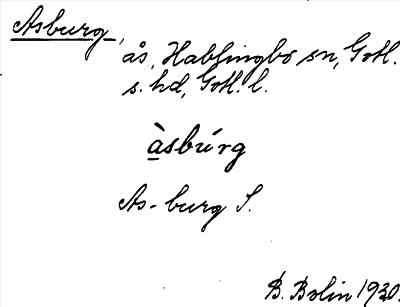 Asburg,
ås, Hablingbo sn, Gotl.
s. hd, Gotl. l.
àsbúrg
As-burg S.
B. Bolin 1930.